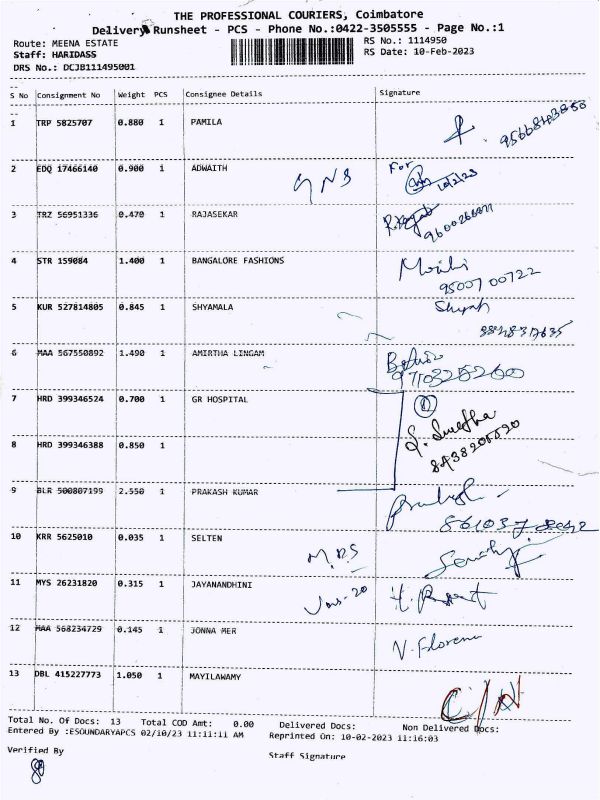 THE PROFESSIONAL COURIERS, Coimbatore
Delivery Runsheet - PCS - Phone No.:0422-3505555 - Page No.:1
Route: MEENA ESTATE
RS No.: 1114950
Staff: HARIDASS
RS Date: 10-Feb-2023
DRS No.: DCJB111495001
S No Consignment No Weight PCS Consignee Details Signature
1 TRP 5825707 0.880 1 PAMILA
2 EDQ 17466140 0.900 1 ADWAITH For
10/2/23
3 TRZ 56951336 0.470 1 RAJASEKAR
4 STR 159084 1.400 1 BANGALORE FASHIONS
9500700722
5 KUR 527814805 0.845 1 SHYAMALA
6 MAA 567550892 1.490 1 AMIRTHA LINGAM
7 HRD 399346524 0.700 1 GR HOSPITAL
8 HRD 399346388 0.850 1
9 BLR 500807199 2.550 1 PRAKASH KUMAR
10 KRR 5625010 0.035 1 SELTEN
11 MYS 26231820 0.315 1 JAYANANDHINI
12 MAA 568234729 0.145 1 JONNA MER
13 DBL 415227773 1.050 1 MAYILAWAMY
Total No. Of Docs: 13 Total COD Amt: 0.00 Delivered Docs: Non Delivered Docs:
Entered By :ESOUNDARYAPCS 02/10/23 11:11:11 AM Reprinted On: 10-02-2023 11:16:03
Verified By Staff Signature